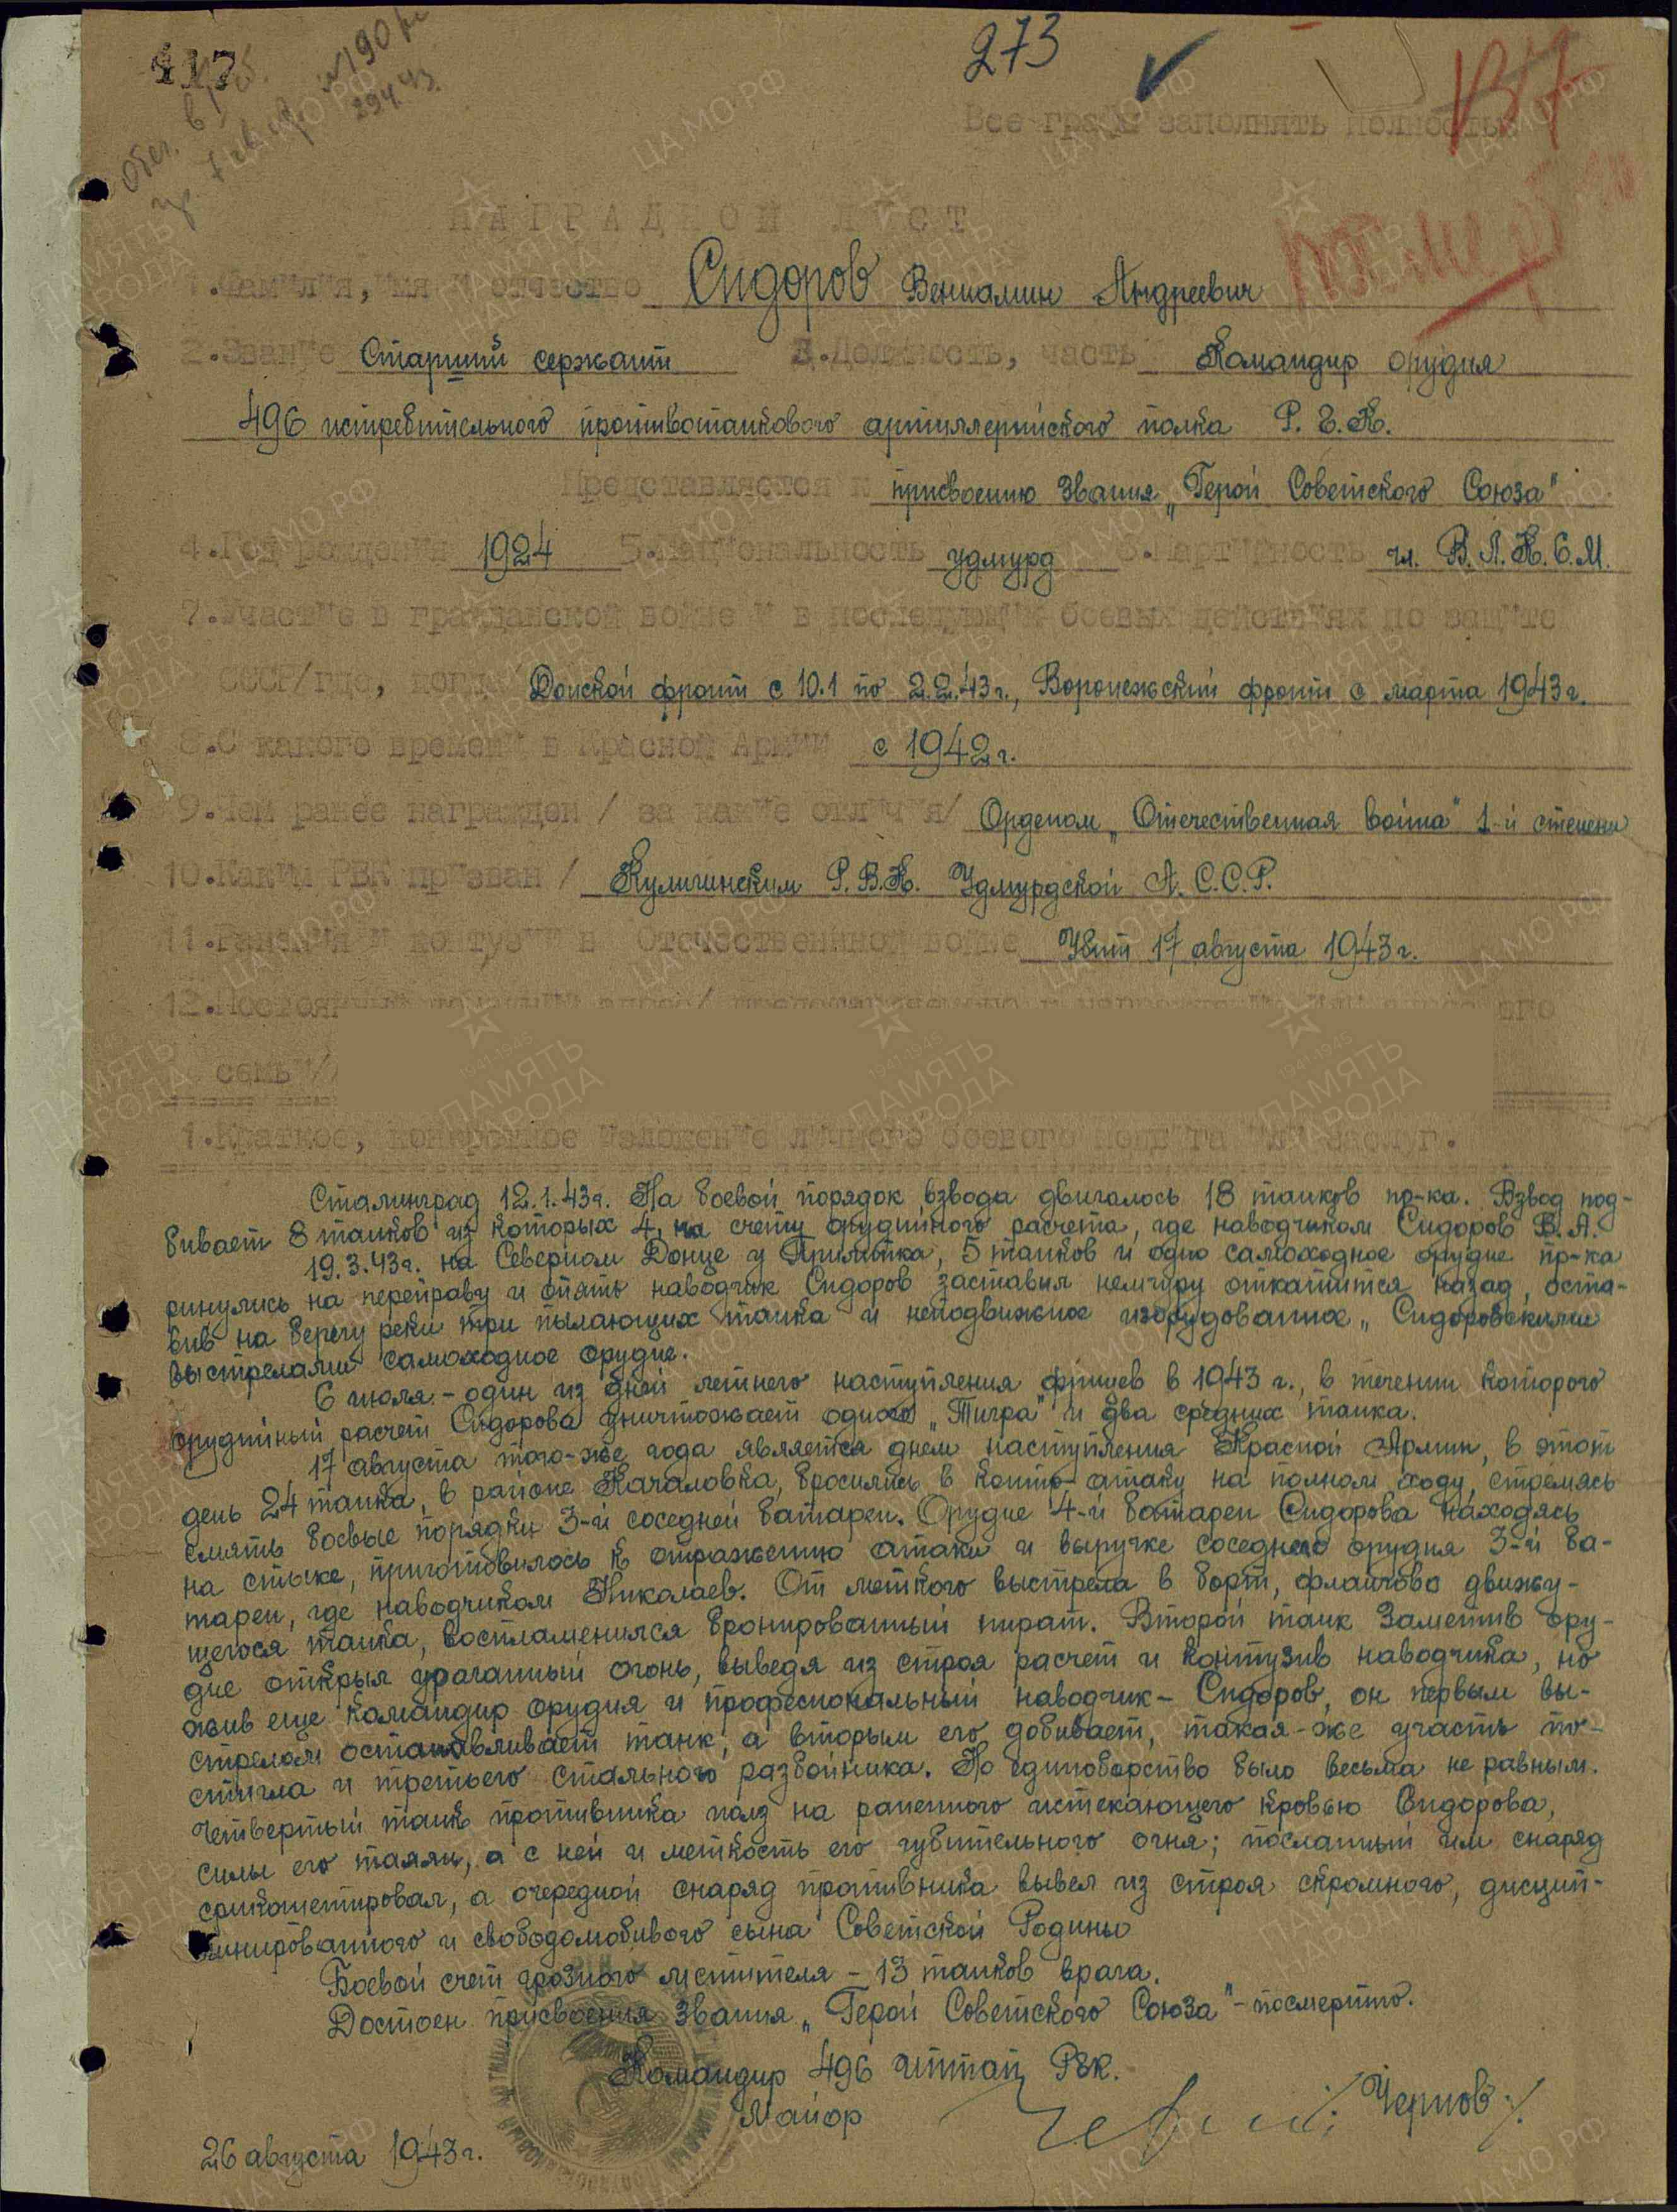 117
273
137
Все графы заполнять полностью
посмертно
НАГРАДНОЙ ЛИСТ
1.Фамилия, имя и отчество Сидоров Вениамин Андреевич
2.Звание Старший сержант 3.Должность, часть Командир орудия
496 истребительного противотанкового артиллерийского полка Р.Г.К.
Представляется к присвоению звания „Герой Советского Союза"
4.Год рождения 1924 5.Национальность удмурд 6.Партийность чл. В.Л.К.С.М.
7.Участие в гражданской войне и в последующих боевых действиях по защите
СССР/где, когда Донской фронт с 10.1 по 2.2.43г., Воронежский фронт с марта 1943г.
8.С какого времени в Красной Армии с 1942г.
9.Чем ранее награжден / за какие отличия/ Орденом „Отечественная война" 1-й степени
10.Каким РВК призван / Кулигинским Р.В.К. Удмурдской А.С.С.Р.
11.Ранения и контузии в Отечественной войне Убит 17 августа 1943г.
12.Постоянный его
семьи/
1.Краткое, конкретное изложение личного боевого подвига или заслуг.
Сталинград 12.1.43г. На боевой порядок взвода двигалось 18 танков пр-ка. Взвод под-
бивает 8 танков из которых 4, на счету орудийного расчета, где наводчиком Сидоров В.А.
19.3.43г. на Северном Донце у 5 танков и одно самоходное орудие пр-ка
ринулись на переправу и опять наводчик Сидоров заставил немчуру откатится назад, оста-
вив на берегу реки три пылающих танка и неподвижное изорудованное „Сидоровскими
выстрелами самоходное орудие.
6 июля - один из дней летнего наступления фрицев в 1943 г., в течении которого
орудийный расчет Сидорова уничтожает одного „Тигра" и два средних танка.
17 августа того-же года является днем наступления Красной Армии, в этот
день 24 танка, в районе Качаловка, бросились в контр-атаку на полном ходу, стремясь
смять боевые порядки 3-й соседней батареи. Орудие 4-й батареи Сидорова находясь
на стыке, приготовилось к отражению атаки и выручке соседнего орудия 3-й ба-
тареи, где наводчиком Николаев. От меткого выстрела в борт, флангово движу-
щегося танка, воспламенился бронированный пират. Второй танк заметив ору-
дие открыл ураганный огонь, выведя из строя расчет и контузив наводчика, но
жив еще командир орудия и професиональный наводчик - Сидоров, он первым вы-
стрелом останавливает танк, а вторым его добивает, такая-же участь по-
стигла и третьего стального разбойника. Но единоборство было весьма не равным.
Четвертый танк противника полз на раненного истекающего кровью Сидорова,
силы его таяли, а с ней и меткость его губительного огня; посланный им снаряд
срикошетировал, а очередной снаряд противника вывел из строя скромного, дисцип-
линированного и свободолюбивого сына Советской Родины
Боевой счет грозного мстителя - 13 танков врага.
Достоен присвоения звания „Герой Советского Союза" - посмертно.
Командир 496 иптап РГК.
Майор /Чернов/.
26 августа 1943г.